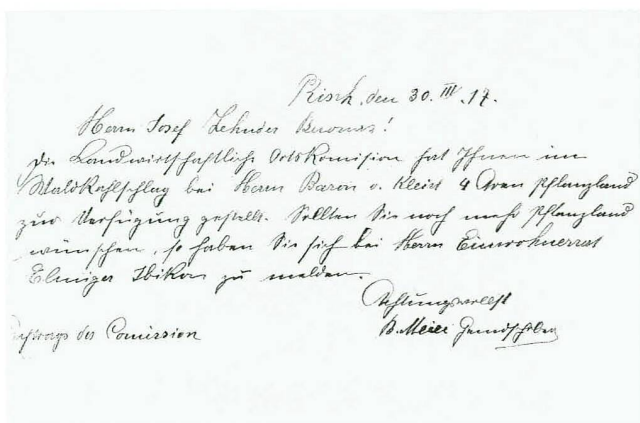 Risch, den 30. III. 17.
Herrn Josef Zehnder Buonas!
Die Landwirtschaftliche Ortskomision hat Ihnen im
Waldkahlschlag bei Herrn Baron v. Kleist 4 Aren Pflanzland
zur Verfügung gestellt. Sollten Sie noch mehr Pflanzland
wünschen, so haben Sie sich bei Herrn Einwohnerrat
Elmiger Ibikon zu melden.
Achtungsvollst
B. Meier Gemdschrbr
auftrags der Comission